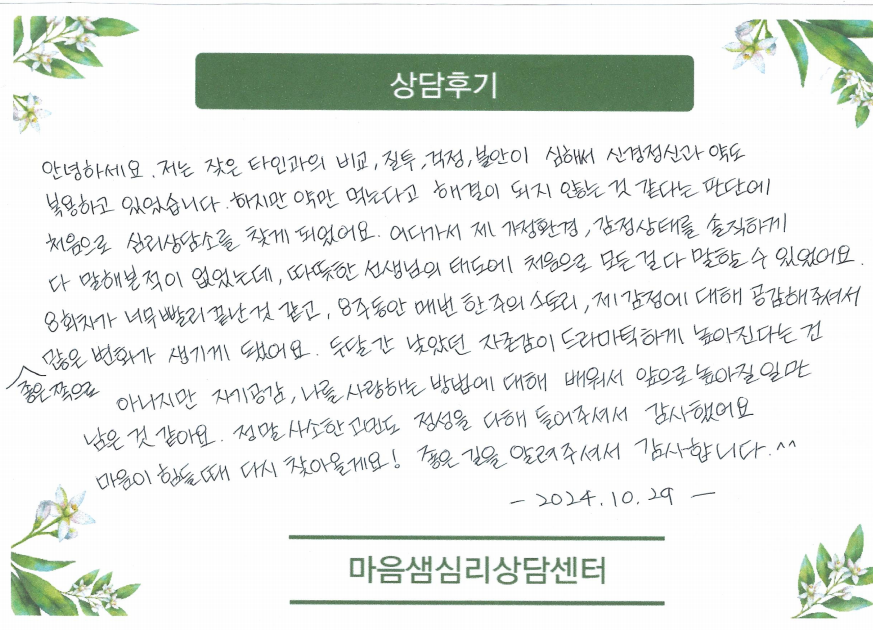 상담후기
안녕하세요. 저는 잦은 타인과의 비교, 질투, 걱정, 불안이 심해써 신경정신과 약도
복용하고 있었습니다. 하지만 약만 먹는다고 해결이 되지 않는 것 같다는 판단에
처음으로 심리상담소를 찾게 되었어요. 어디가서 제 가정환경, 감정상태를 솔직하게
다 말해본적이 없었는데, 따뜻한 선생님의 태도에 처음으로 모든걸 다 말할 수 있었어요.
8회차가 너무 빨리 끝난것 같고, 8주동안 매번 한 주의 스토리, 제 감정에 대해 공감해주셔서
많은 변화가 생기게 됐어요. 두달간 낮았던 자존감이 드라마틱하게 높아진다는 건
좋은쪽으로
아니지만 자기공감, 나를 사랑하는 방법에 대해 배워서 앞으로 높아질 일만
남은 것 같아요. 정말 사소한 고민도 정성을 다해 들어주셔서 감사했어요
마음이 힘들때 다시 찾아올게요! 좋은 길을 알려주셔서 감사합니다.^^
- 2024. 10. 29 -
마음샘심리상담센터